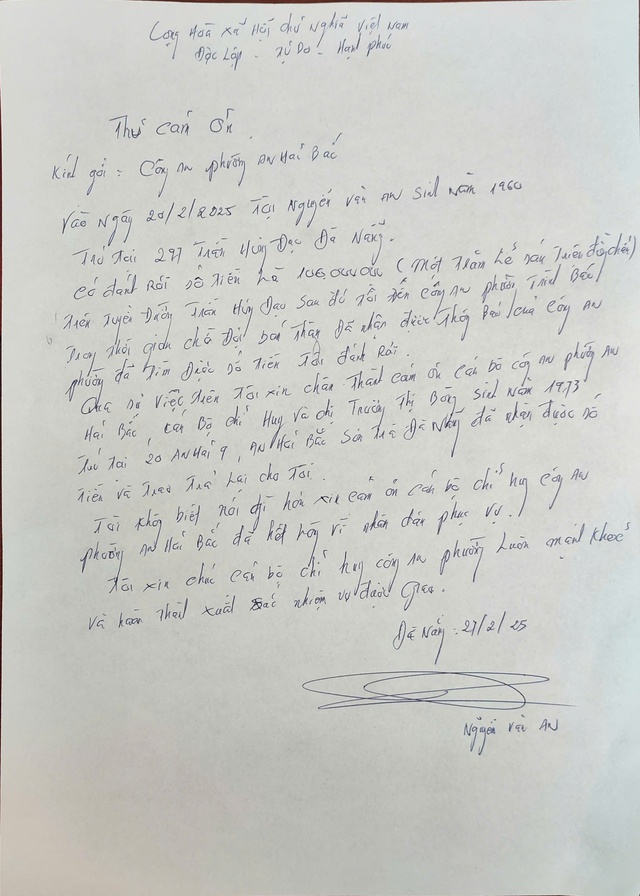 Cộng Hoà Xã Hội Chủ Nghĩa Việt Nam
Độc Lập - Tự Do - Hạnh phúc
Thư cảm ơn
Kính gởi : Công An phường An Hải Bắc
Vào Ngày 20/2/2025 Tôi Nguyễn Văn An Sinh Năm 1960
Trú Tại 297 Trần Hưng Đạo Đà Nẵng.
Có đánh Rơi Số Tiền Là (Một Trăm Lẻ Sáu Triệu đồng chẵn)
Trên Tuyến Đường Trần Hưng Đạo Sau đó Tôi Đến Công An phường Trình Báo
Trong Thời gian chờ Đợi bản Thân Đã nhận được Thông Báo của Công An
phường đã Tìm Được Số Tiền Tôi đánh Rơi.
Qua Sự Việc Trên Tôi xin chân Thành cảm ơn cán bộ công An phường An
Hải Bắc, cán Bộ chỉ Huy và chị Trương Thị Bông Sinh Năm 1973
Trú Tại 20 An Hải 9, An Hải Bắc Sơn Trà Đà Nẵng đã nhặt được Số
Tiền và Trao Trả Lại cho Tôi.
Tôi không biết nói gì hơn xin cảm ơn cán bộ chỉ huy công An
phường An Hải Bắc đã hết lòng vì nhân dân phục vụ.
Tôi xin chúc cán bộ chỉ huy công An phường Luôn mạnh khoẻ
và hoàn thành xuất sắc nhiệm vụ được Giao.
Đà Nẵng : 27/2/25
Nguyễn Văn An